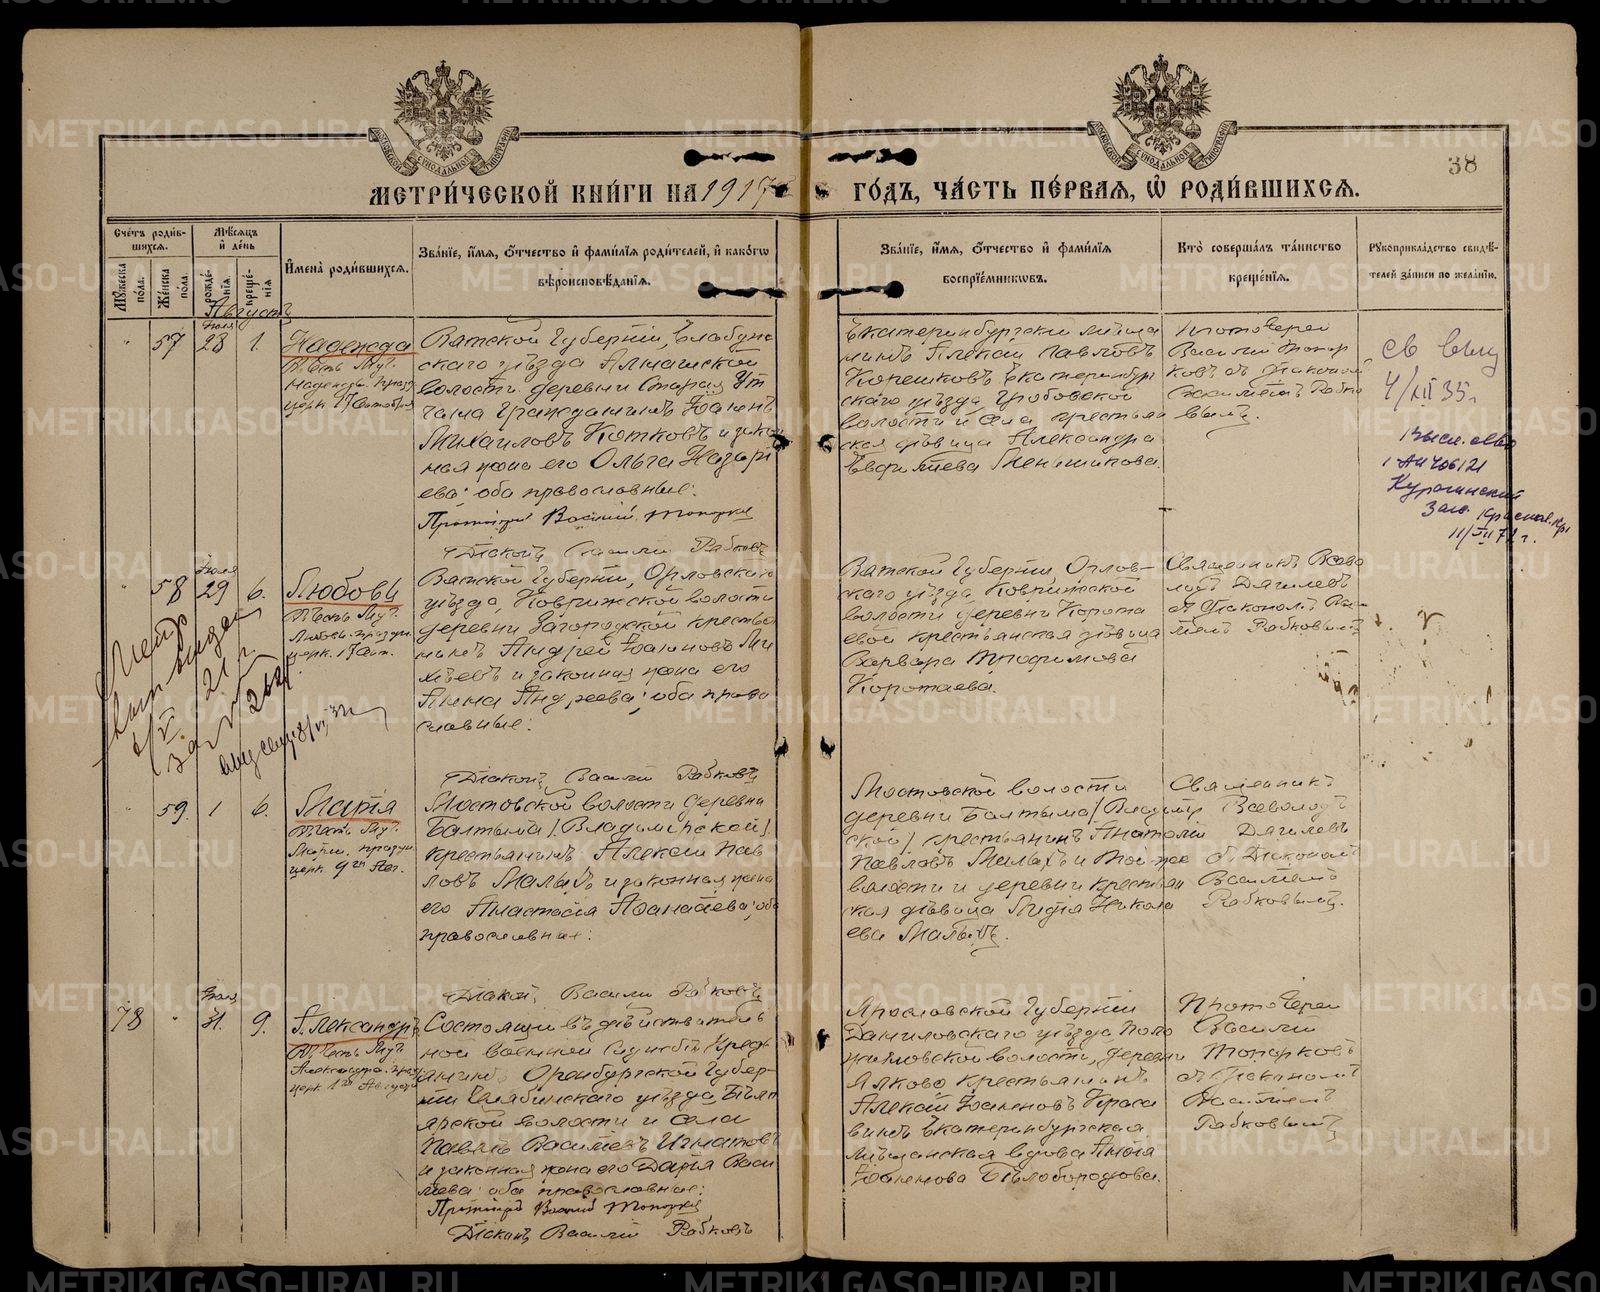 МЕТРИ́ЧЕСКОЙ КНИ́ГИ НА 1917
ГО́ДЪ, ЧА́СТЬ ПЕ́РВАЯ, Ѽ РОДИ́ВШИХСѦ.
38
Сче́тъ роди́в-
шихсѧ.
Мꙋ́жеска по́ла.
Же́нска по́ла.
Мѣ́сѧцъ и҆ де́нь
рожде́-
нїѧ
креще́-
нїѧ
И҆мена̀ роди́вшихсѧ.
Зва́нїе, и҆́мѧ, ѻ҆́тчество и҆ фами́лїѧ роди́телей, и҆ како́гѡ
вѣроисповѣ́данїѧ.
Зва́нїе, и҆́мѧ, ѻ҆́тчество и҆ фами́лїѧ
воспрїе́мникѡвъ.
Кто̀ соверша́лъ та́инство
креще́нїѧ.
Рꙋкоприкла́дство свидѣ́-
телей за́писи по жела́нїю.
Августъ
57
Іюля
28
1.
Надежда
Въ честь Муч.
Надежды. празд.
церк. 17 Сентября
Вятской Губерніи, Елабуж
скаго уѣзда Алнашской
волости деревни Старая Ут
чана Гражданинъ Іоаннъ
Михаиловъ Котковъ и закон
ная жена его Ольга Назарі
ева: оба православные.
Протоіерей Василій Топорков
Діаконъ Василій Рябковъ
Екатеринбургскій мѣща
нинъ Алексій Павловъ
Корешковъ Екатеринбург
скаго уѣзда Гробовской
волости и села крестьян
ская дѣвица Александра
Евфиміева Меньшикова.
Протоіерей
Василій Топор
ковъ съ діакономъ
Рябко
вымъ.
св выд
4/XII 35г.
Высл. св-во
АИ 406121
Курагинский
загс Краснояр. кр
11/VII 72 г.
58
Іюля
29
6.
Любовь
Въ честь Муч.
Любовь. праздн.
церк. 17 Сент.
Вятской Губерніи, Орловскаго
уѣзда, Коврижской волости
деревни Загородской крестья
нинъ Андрей Іоанновъ Ми
хѣевъ и законная жена его
Анна Андреева; оба право
славные.
Діаконъ Василій Рябковъ
Вятской Губерніи Орлов-
скаго уѣзда, Коврижской
волости деревни Корота
евой крестьянская дѣвица
Варвара Трофимова
Коротаева.
Священникъ Всево
лодъ Дягилевъ
съ діакономъ Васи
ліемъ Рябковымъ
Метр.
вып. выдан
6/V 21 г.
за № 262
59.
1
6.
Марія
Въ честь Муч.
Маріи. праздн.
церк. 9го Авг.
Мостовской волости деревни
Балтыма /Владимірской/
крестьянинъ Алексій Пав
ловъ Малыхъ и законная жена
его Анастасія Аѳанасіева; оба
православные.
Діаконъ Василій Рябковъ
Мостовской волости
деревни Балтыма /Владимір
ской/ крестьянинъ Анатолій
Павловъ Малыхъ и той-же
волости и деревни крестьян
ская дѣвица Лидія Никола
ева Малыхъ.
Священникъ
Всеволодъ
Дягилевъ
съ Діакономъ
Василіемъ
Рябковымъ.
78
Іюля
31.
9.
Александръ
Въ честь Муч.
Александра. праз
церк. 1го Августа
Состоящій въ дѣйствитель
ной военной службѣ Кресть
янинъ Оренбургской Губер-
ніи Челябинскаго уѣзда, Бѣляр
ярской волости и села
Павелъ Василіевъ Игнатовъ
и законная жена его Дарія Васи
ліева: оба православные.
Протоіерей Василій Топорков
Діаконъ Василій Рябковъ
Ярославской Губерніи
Даниловскаго уѣзда
волости, деревни
Ялково крестьянинъ
Алексій Іоанновъ Краса
винъ Екатеринбургская
мѣщанская вдова Анна
Іоаннова Бѣлобородова.
Протоіерей
Василій
Топорковъ
съ Діакономъ
Василіемъ
Рябковымъ
METRIKI.GASO-URAL.RU